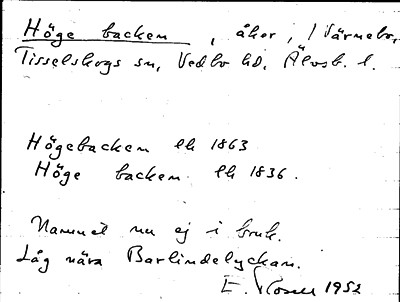 Höge backen, åker, i Värnebo,
Tisselskogs sn, Vedbo hd, Älvsb. l.
Högebacken lh 1863
Höge backen lh 1836.
Namnet nu ej i bruk.
Låg nära Barlindelyckan.
E. 1952